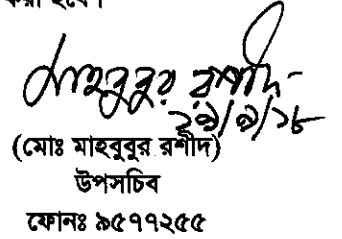 করা হবে।
মাহবুবুর রশীদ
২৯/৯/১৮
(মোঃ মাহবুবুর রশীদ)
উপসচিব
ফোনঃ ৯৫৭৭২৫৫